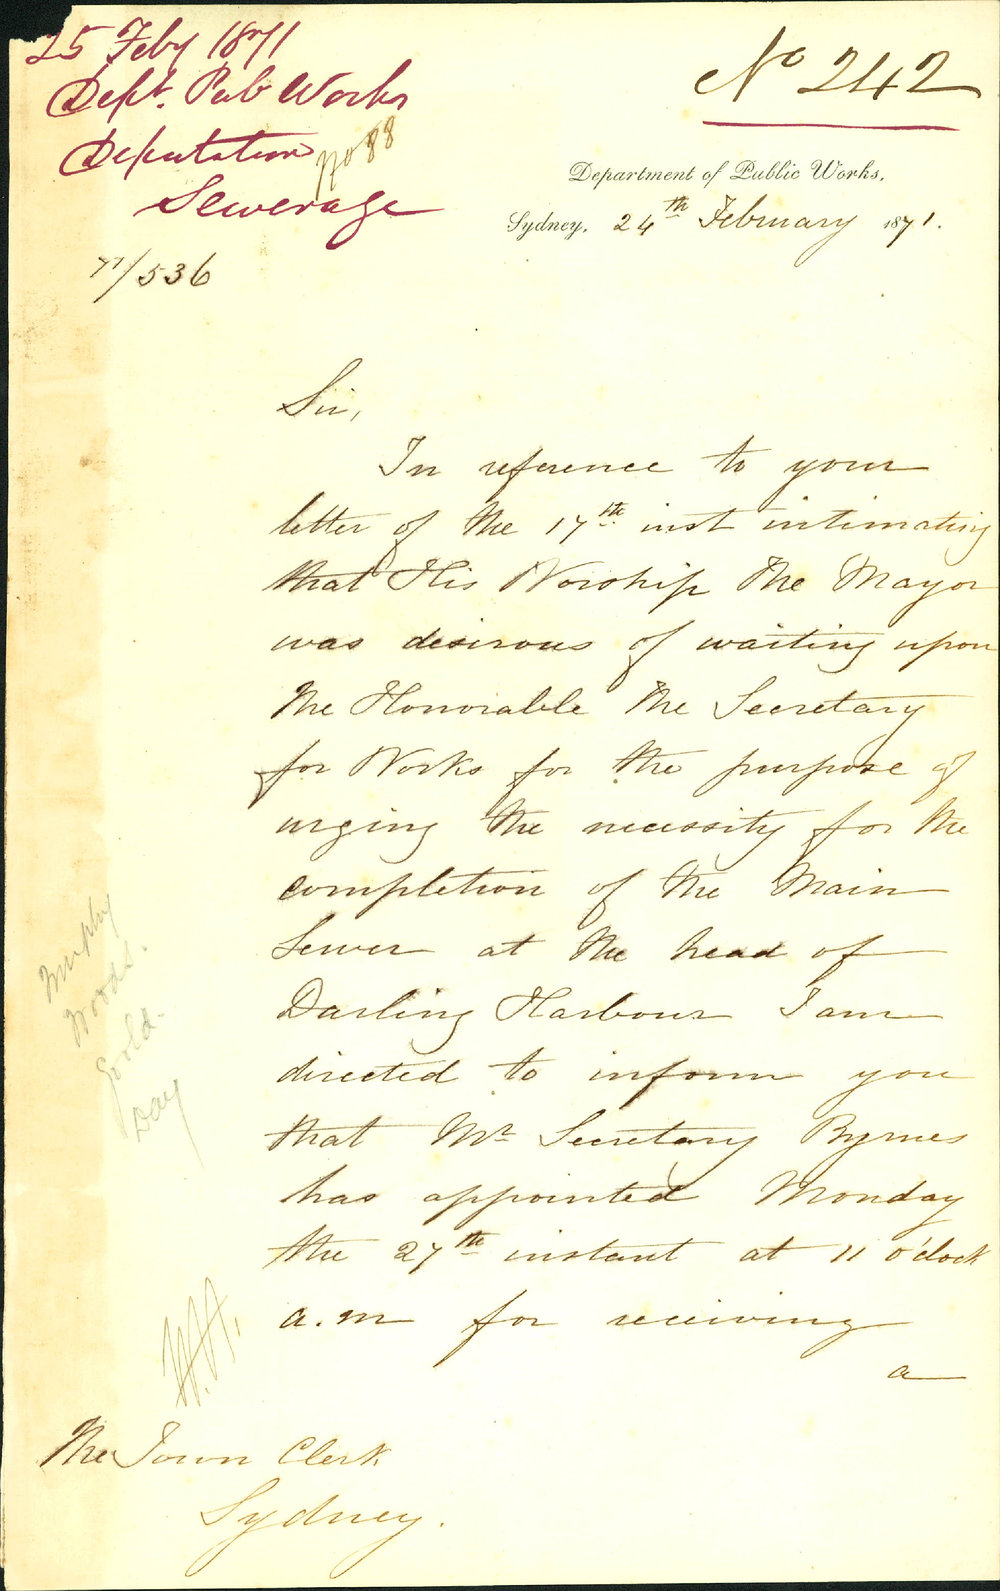 25 Feby 1871
Dept. Pub Works
Deputation
No 88
Sewerage
71/536
No 242
Department of Public Works,
Sydney, 24th February 1871.
Sir,
In reference to your
letter of the 17th inst intimating
that His Worship The Mayor
was desirous of waiting upon
the Honorable the Secretary
for Works for the purpose of
urging the necessity for the
completion of the Main
Sewer at the head of
Darling Harbour I am
directed to inform you
that Mr Secretary Byrnes
has appointed Monday
the 27th instant at 11 o'clock
a.m for receiving
a
Murphy
Woods.
Goold.
Day
The Town Clerk
Sydney.